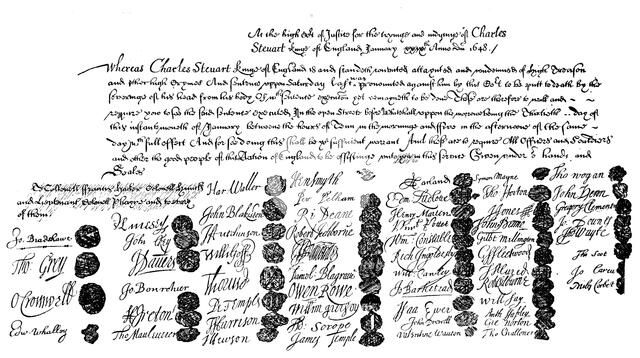 At the high Cot of Justice for the tryinge and iudginge of Charles
Steuart Kinge of England January xxixth Anno Dni 1648./
Whereas Charles Steuart Kinge of England is and standeth convicted attaynted and condemned of High Treason
and other high Crymes And sentence uppon Saturday last was pronounced against him by this Cot to be putt to death by the
severinge of his head from his body Of wch sentence execucon yet remayneth to be done These are therefore to will and
require you to see the said sentence executed In the open Streete before Whitehall uppon the morrowe being the Thirtieth day of
this instante moneth of January betweene the houres of Tenn in the morninge and five in the afternoone of the same
day wth full effect And for soe doing this shall be yor sufficient warrant And these are to require All Officers and Souldiers
and other the good people of this Nation of England to be assistinge unto you in this service Given under or hands and
Seales
To Collonell Huncks Collonell
and Lieutenant Collonell Phayre and to every
of them.
Jo. Bradshawe
Tho Grey
O Cromwell
Edw Whalley
John Okey
J Danvers
Jo Bourchier
H Ireton
Tho Mauleverer
Har Waller
John Blakiston
J Hutchinson
Willi Goff
T Harrison
J Hewson
Hen Smyth
Per Pelham
Ri Deane
Robert Tichborne
Owen Rowe
James Temple
A Garland
Edm Ludlowe
Henry Marten
Wm Constable
Rich Ingoldesby
Will Cawley
Jo Barkstead
Isaa Ewer
John Dixwell
Valentine Wauton
Symon Mayne
Tho Horton
J Jones
John Moore
Gilbt Millington
G Fleetwood
J Alured
Robt Lilburne
Will Say
Anth Stapley
Gre Norton
Tho Challoner
Tho Wogan
John Venn
Gregory Clement
Jo Downes
Tho Wayte
Tho Scot
Jo Carew
Miles Corbet